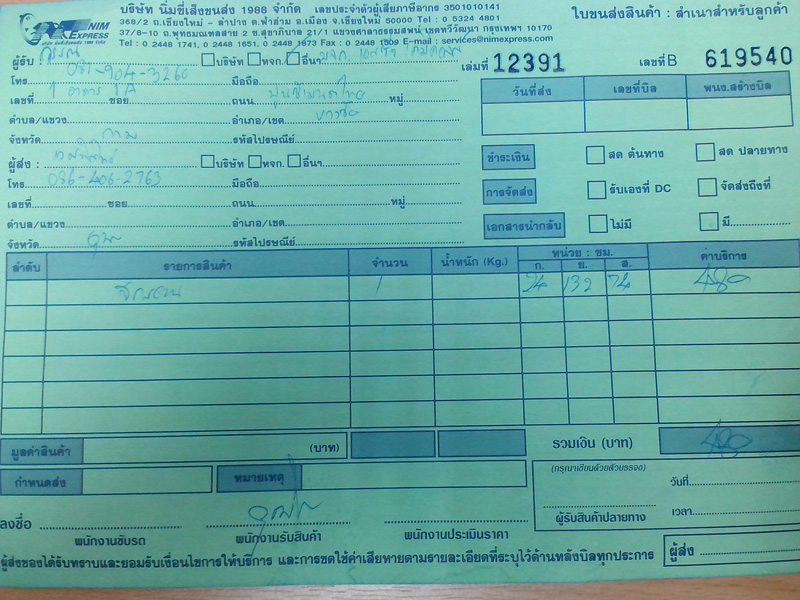 NIM EXPRESS
บริษัท นิ่มซี่เส็งขนส่ง 1988 จำกัด เลขประจำตัวผู้เสียภาษีอากร 3501010141
368/2 ถ.เชียงใหม่ - ลำปาง ต.ฟ้าฮ่าม อ.เมือง จ.เชียงใหม่ 50000 Tel : 0 5324 4801
37/8-10 ถ.พุทธมณฑลสาย 2 ซ.สุขาภิบาล 21/1 แขวงศาลาธรรมสพน์ เขตทวีวัฒนา กรุงเทพฯ 10170
Tel : 0 2448 1741, 0 2448 1651, 0 2448 1973 Fax : 0 2448 1509 E-mail : services@nimexpress.com
ใบขนส่งสินค้า : สำเนาสำหรับลูกค้า
เล่มที่ 12391 เลขที่ B 619540
ผู้รับ : บริษัท หจก. อื่นฯ
โทร 081-904-3260 มือถือ
เลขที่ 1 อาคาร ซอย ถนน ปูนซิเมนต์ไทย หมู่
ตำบล/แขวง อำเภอ/เขต บางซื่อ
จังหวัด กทม รหัสไปรษณีย์
ผู้ส่ง : บริษัท หจก. อื่นฯ
โทร 036-406-2763 มือถือ
เลขที่ ซอย ถนน หมู่
ตำบล/แขวง อำเภอ/เขต
จังหวัด รหัสไปรษณีย์
วันที่ส่ง เลขที่บิล พนง.สร้างบิล
ชำระเงิน สด ต้นทาง สด ปลายทาง
การจัดส่ง รับเองที่ DC จัดส่งถึงที่
เอกสารนำกลับ ไม่มี มี
ลำดับ รายการสินค้า จำนวน น้ำหนัก (Kg.) หน่วย : ซม. ค่าบริการ
ก. ย. ส.
1 74 132 74 480
มูลค่าสินค้า (บาท) รวมเงิน (บาท) 480
กำหนดส่ง หมายเหตุ
(กรุณาเขียนด้วยตัวบรรจง)
ผู้รับสินค้าปลายทาง
วันที่
เวลา
ลงชื่อ
พนักงานขับรถ พนักงานรับสินค้า พนักงานประเมินราคา
ผู้ส่งของได้รับทราบและยอมรับเงื่อนไขการให้บริการ และการชดใช้ค่าเสียหายตามรายละเอียดที่ระบุไว้ด้านหลังบิลทุกประการ
ผู้ส่ง